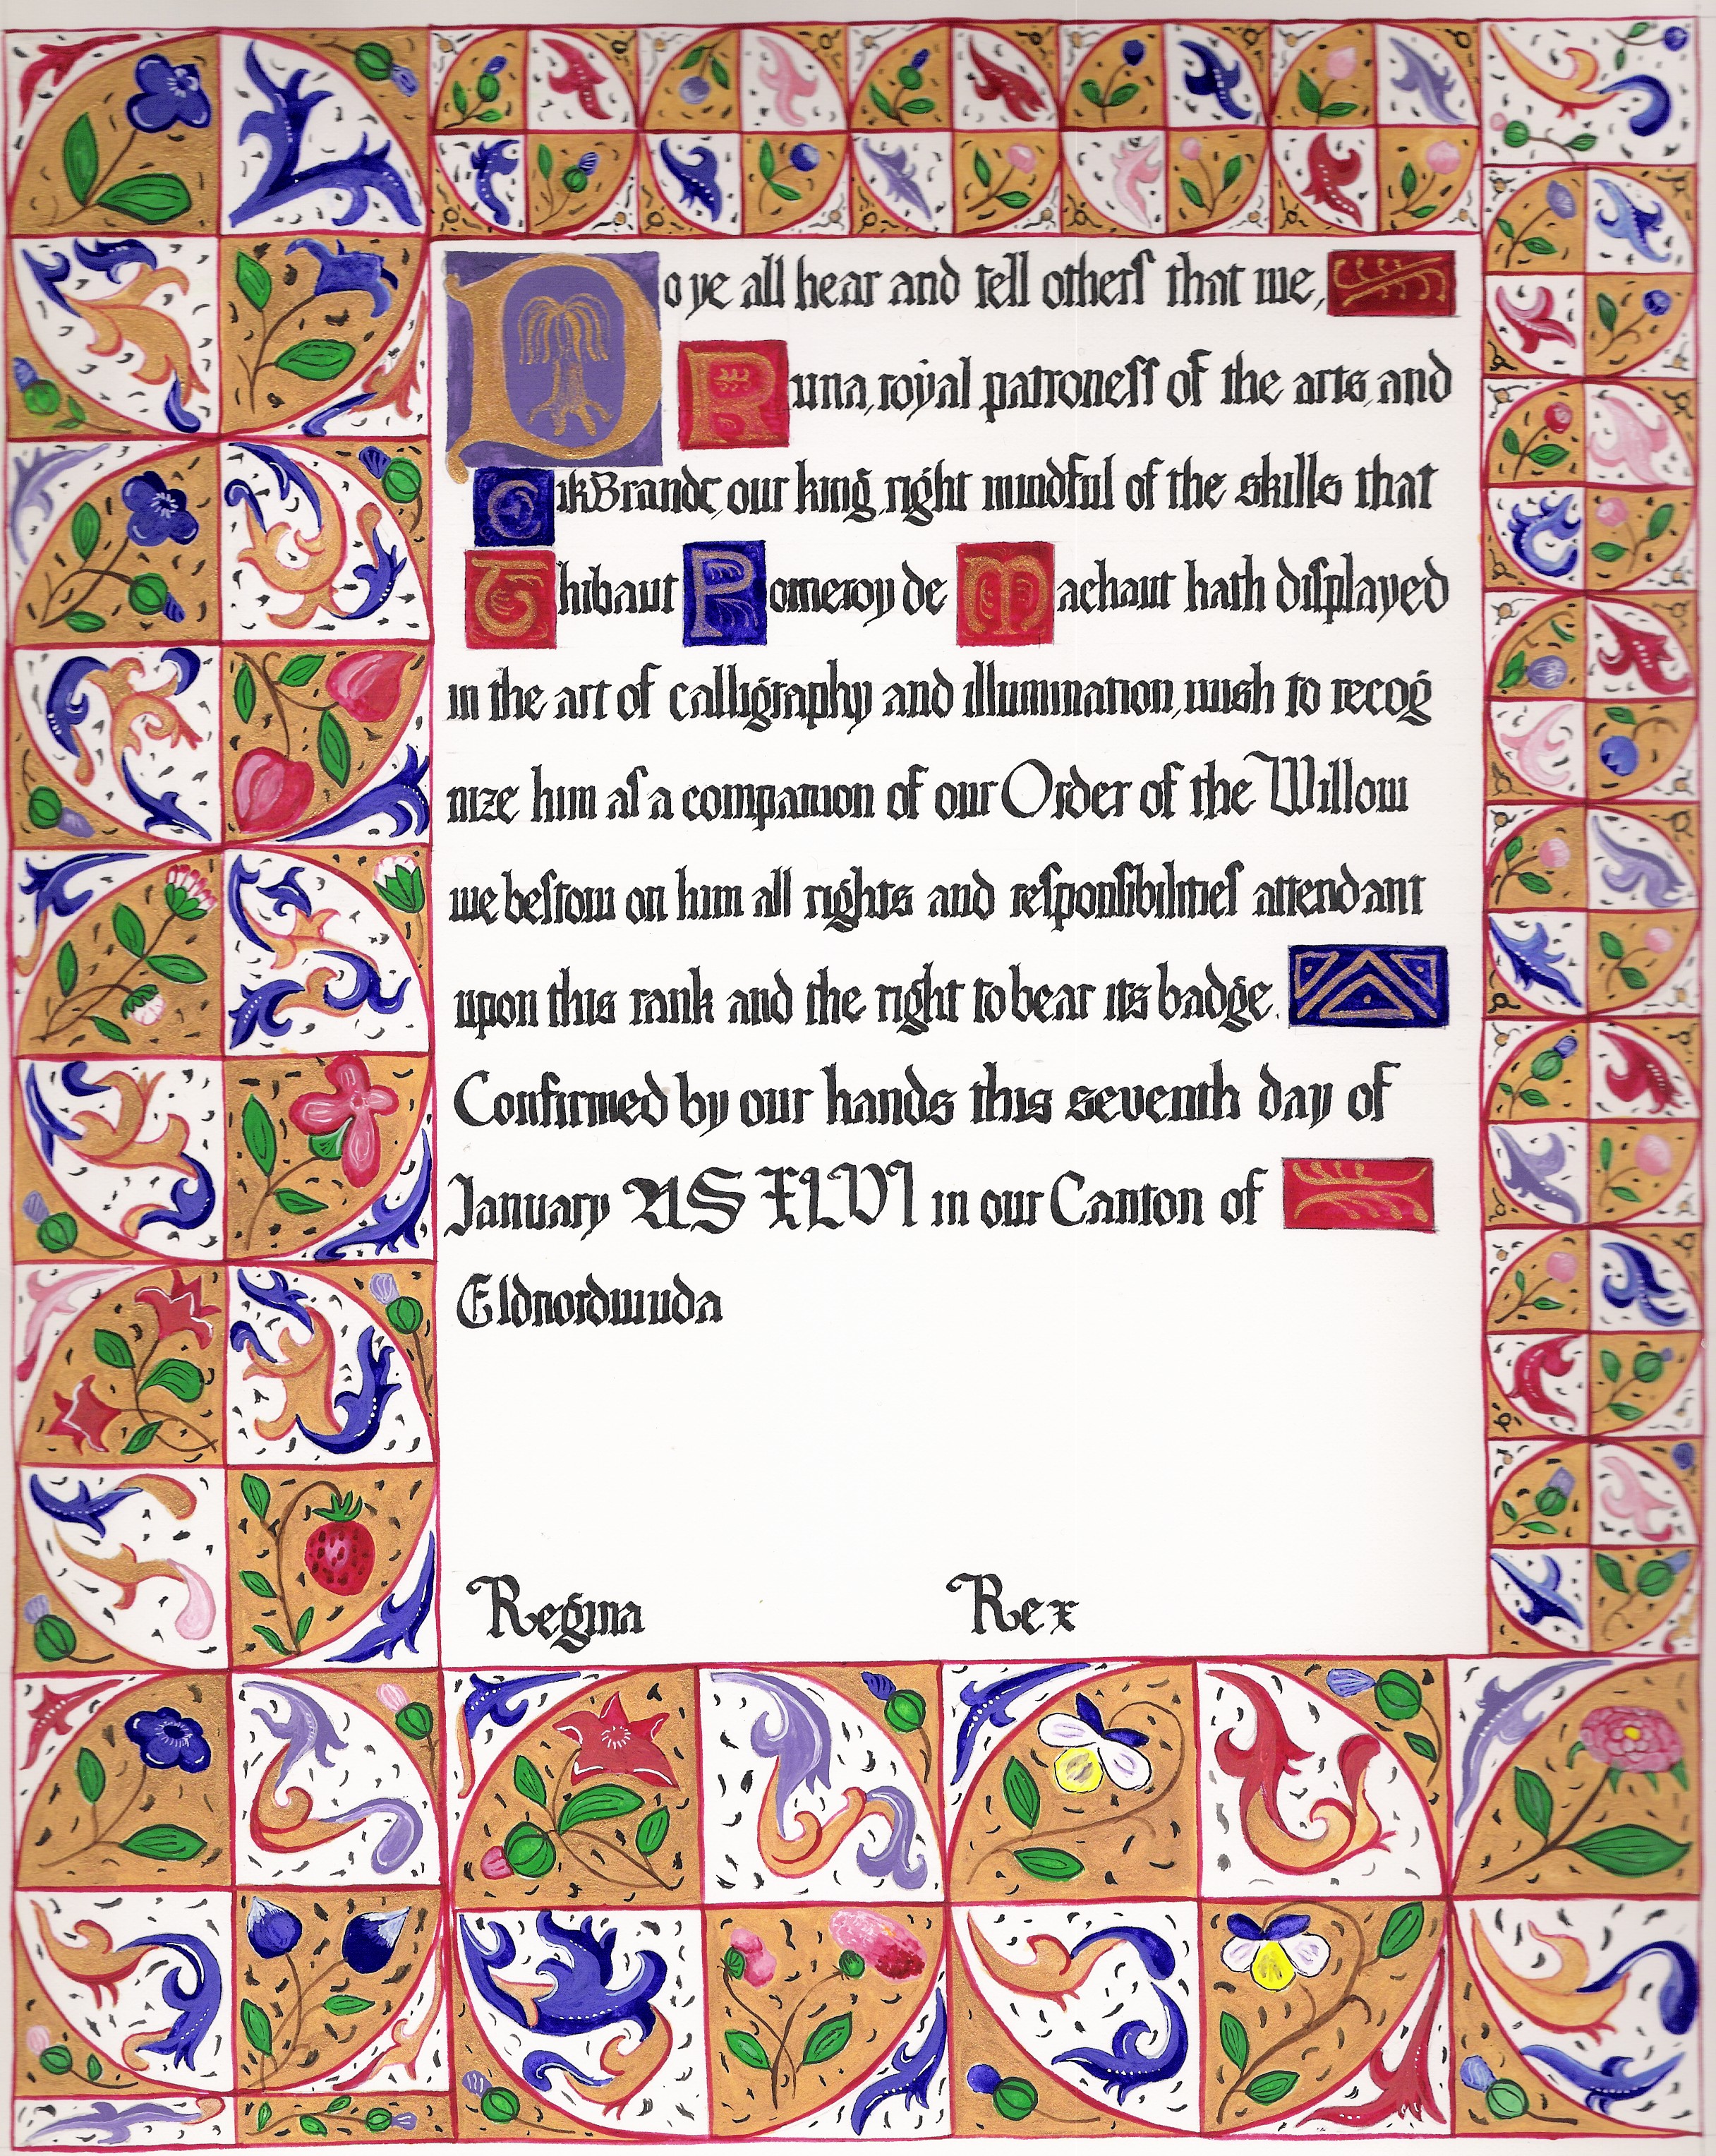 Do ye all hear and tell otherſ that we,
Runa, royal patroneſſ of the arts, and
EikBrandr, our king, right mindful of the skills that
Thibaut Pomeroy de Machaut hath diſplayed
in the art of calligraphy and illumination, wish to recog
nize him aſ a companion of our Order of the Willow
we beſtow on him all rights and reſponſibilitieſ attendant
upon this rank and the right to bear its badge.
Confirmed by our hands this seventh day of
January AS XLVI in our Canton of
Eldnordwuda
Regina Rex